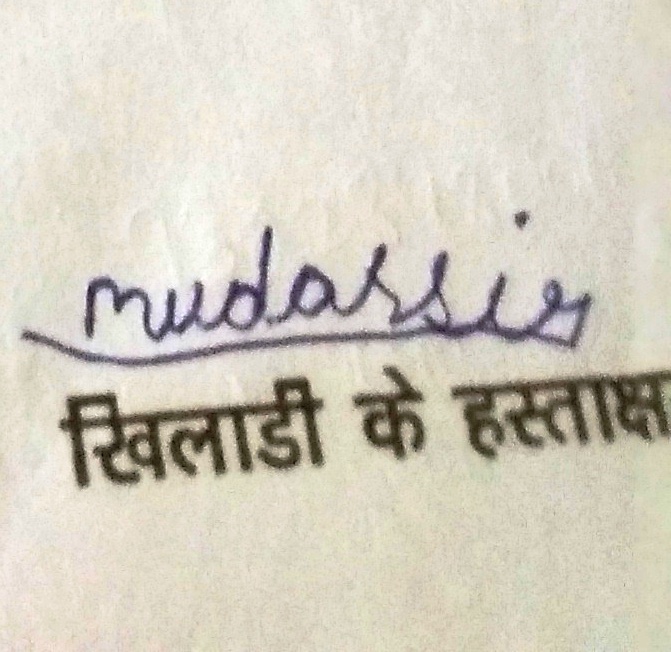 mudassir
खिलाडी के हस्ताक्ष